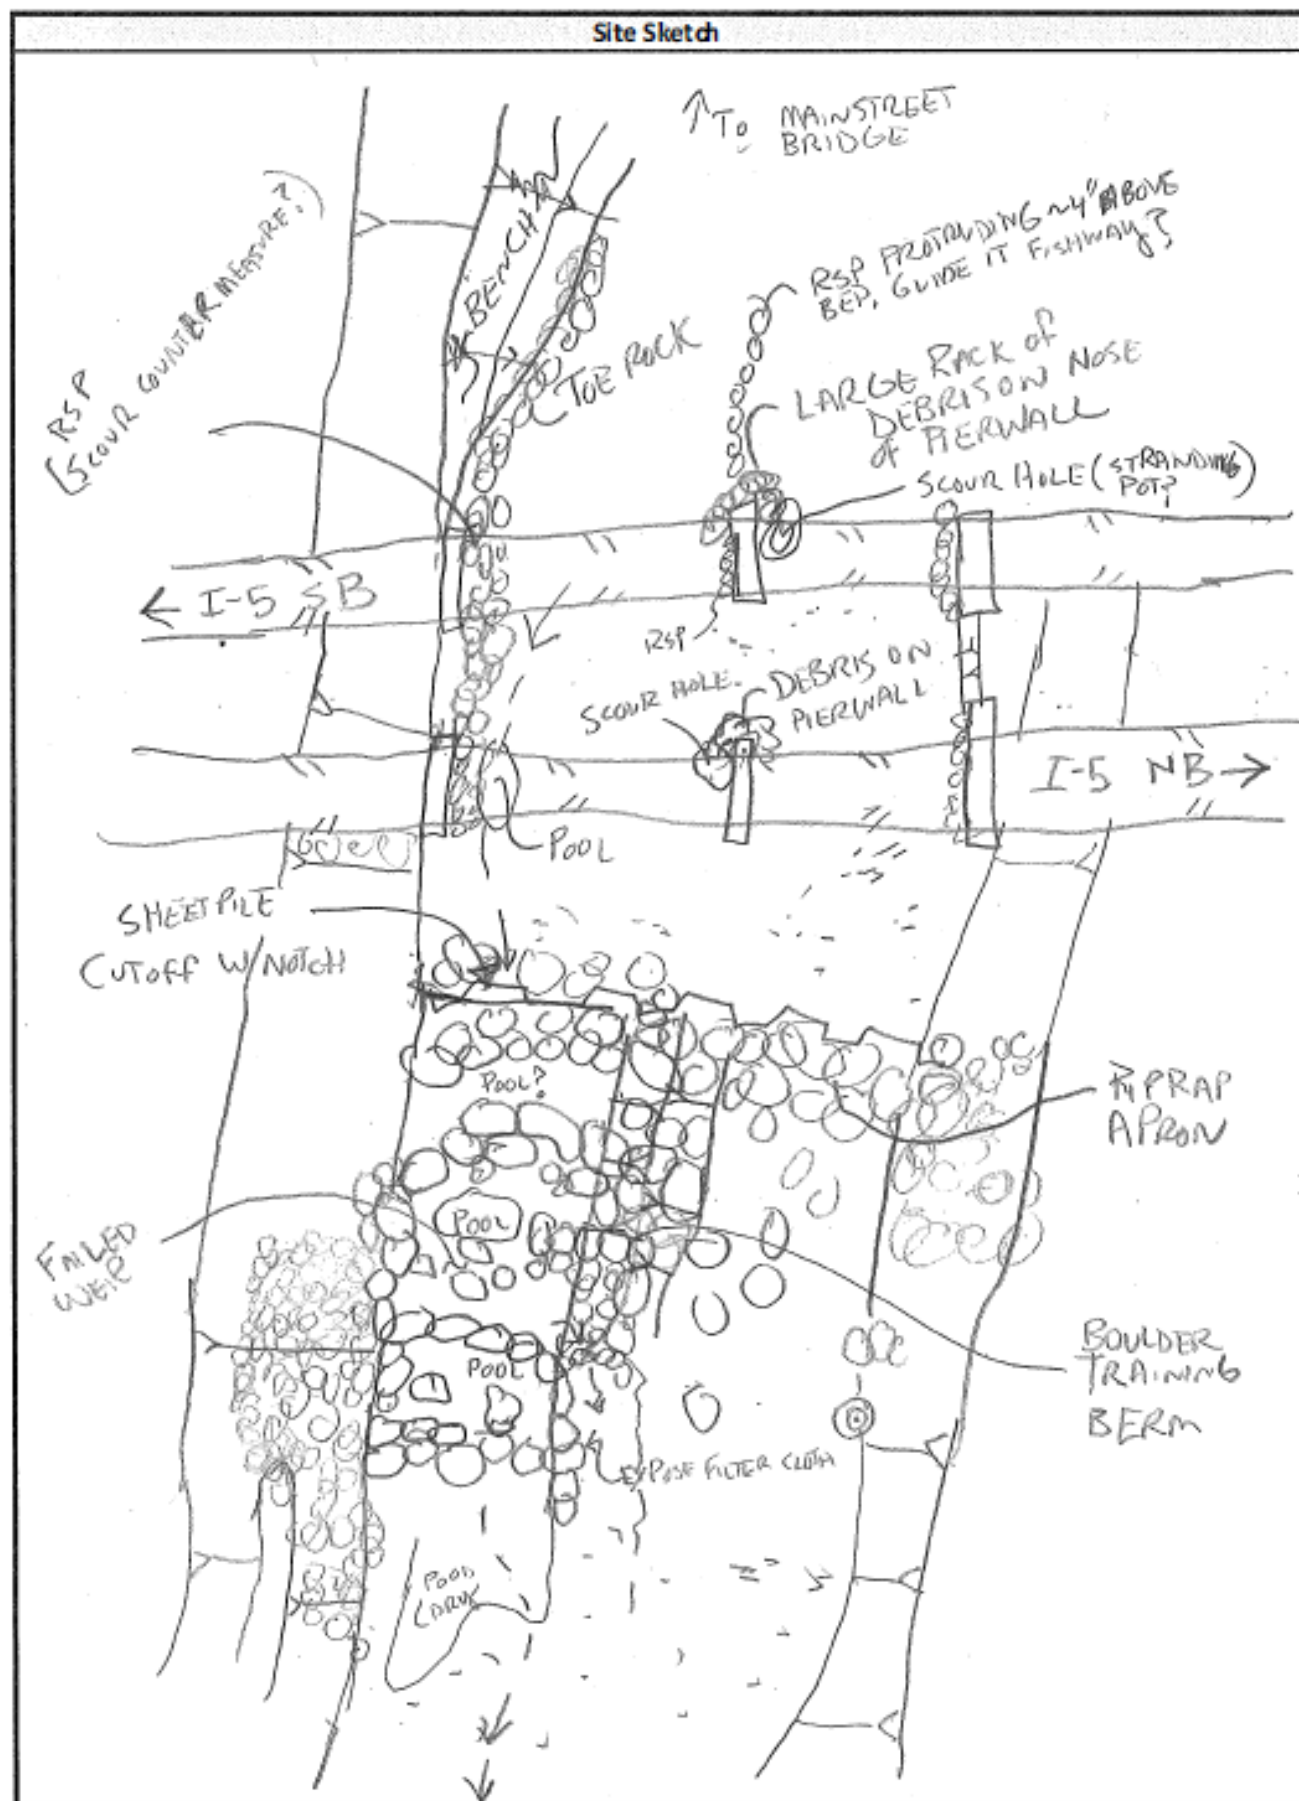 Site Sketch
↑ To MAINSTREET
BRIDGE
RSP
(SCOUR COUNTERMEASURE?)
BENCH
RSP PROTRUDING ~4" ABOVE
BED, GUIDE IT FISHWAY?
TOE ROCK
LARGE RACK OF
DEBRIS ON NOSE
OF PIERWALL
SCOUR HOLE (STRANDING
POT?)
← I-5 SB
RSP
SCOUR HOLE
DEBRIS ON
PIERWALL
I-5 NB →
POOL
SHEETPILE
CUTOFF W/NOTCH
POOL?
RIPRAP
APRON
POOL
FAILED
WEIR
POOL
BOULDER
TRAINING
BERM
EXPOSE FILTER CLOTH
POOL